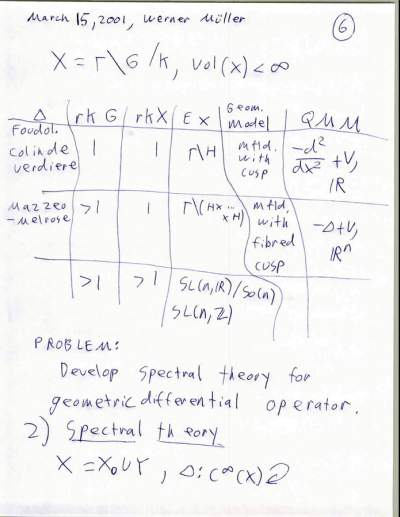 March 15, 2001, Werner Müller
6
X = Γ\G/K, vol(X)<∞
Δ rk G rk X EX Geom. Model QMM
Colin de Verdiere 1 1 Γ\H mfld. with cusp -d²/dx² + V, ℝ
Mazzeo -Melrose >1 1 Γ\(H× ... ×H) mfld. with fibred cusp -Δ+V, ℝⁿ
>1 >1 SL(n,ℝ)/SO(n) SL(n,ℤ)
PROBLEM:
Develop spectral theory for
geometric differential operator.
2) Spectral theory
X = X₀∪Y, Δ: C^∞(X)⟲